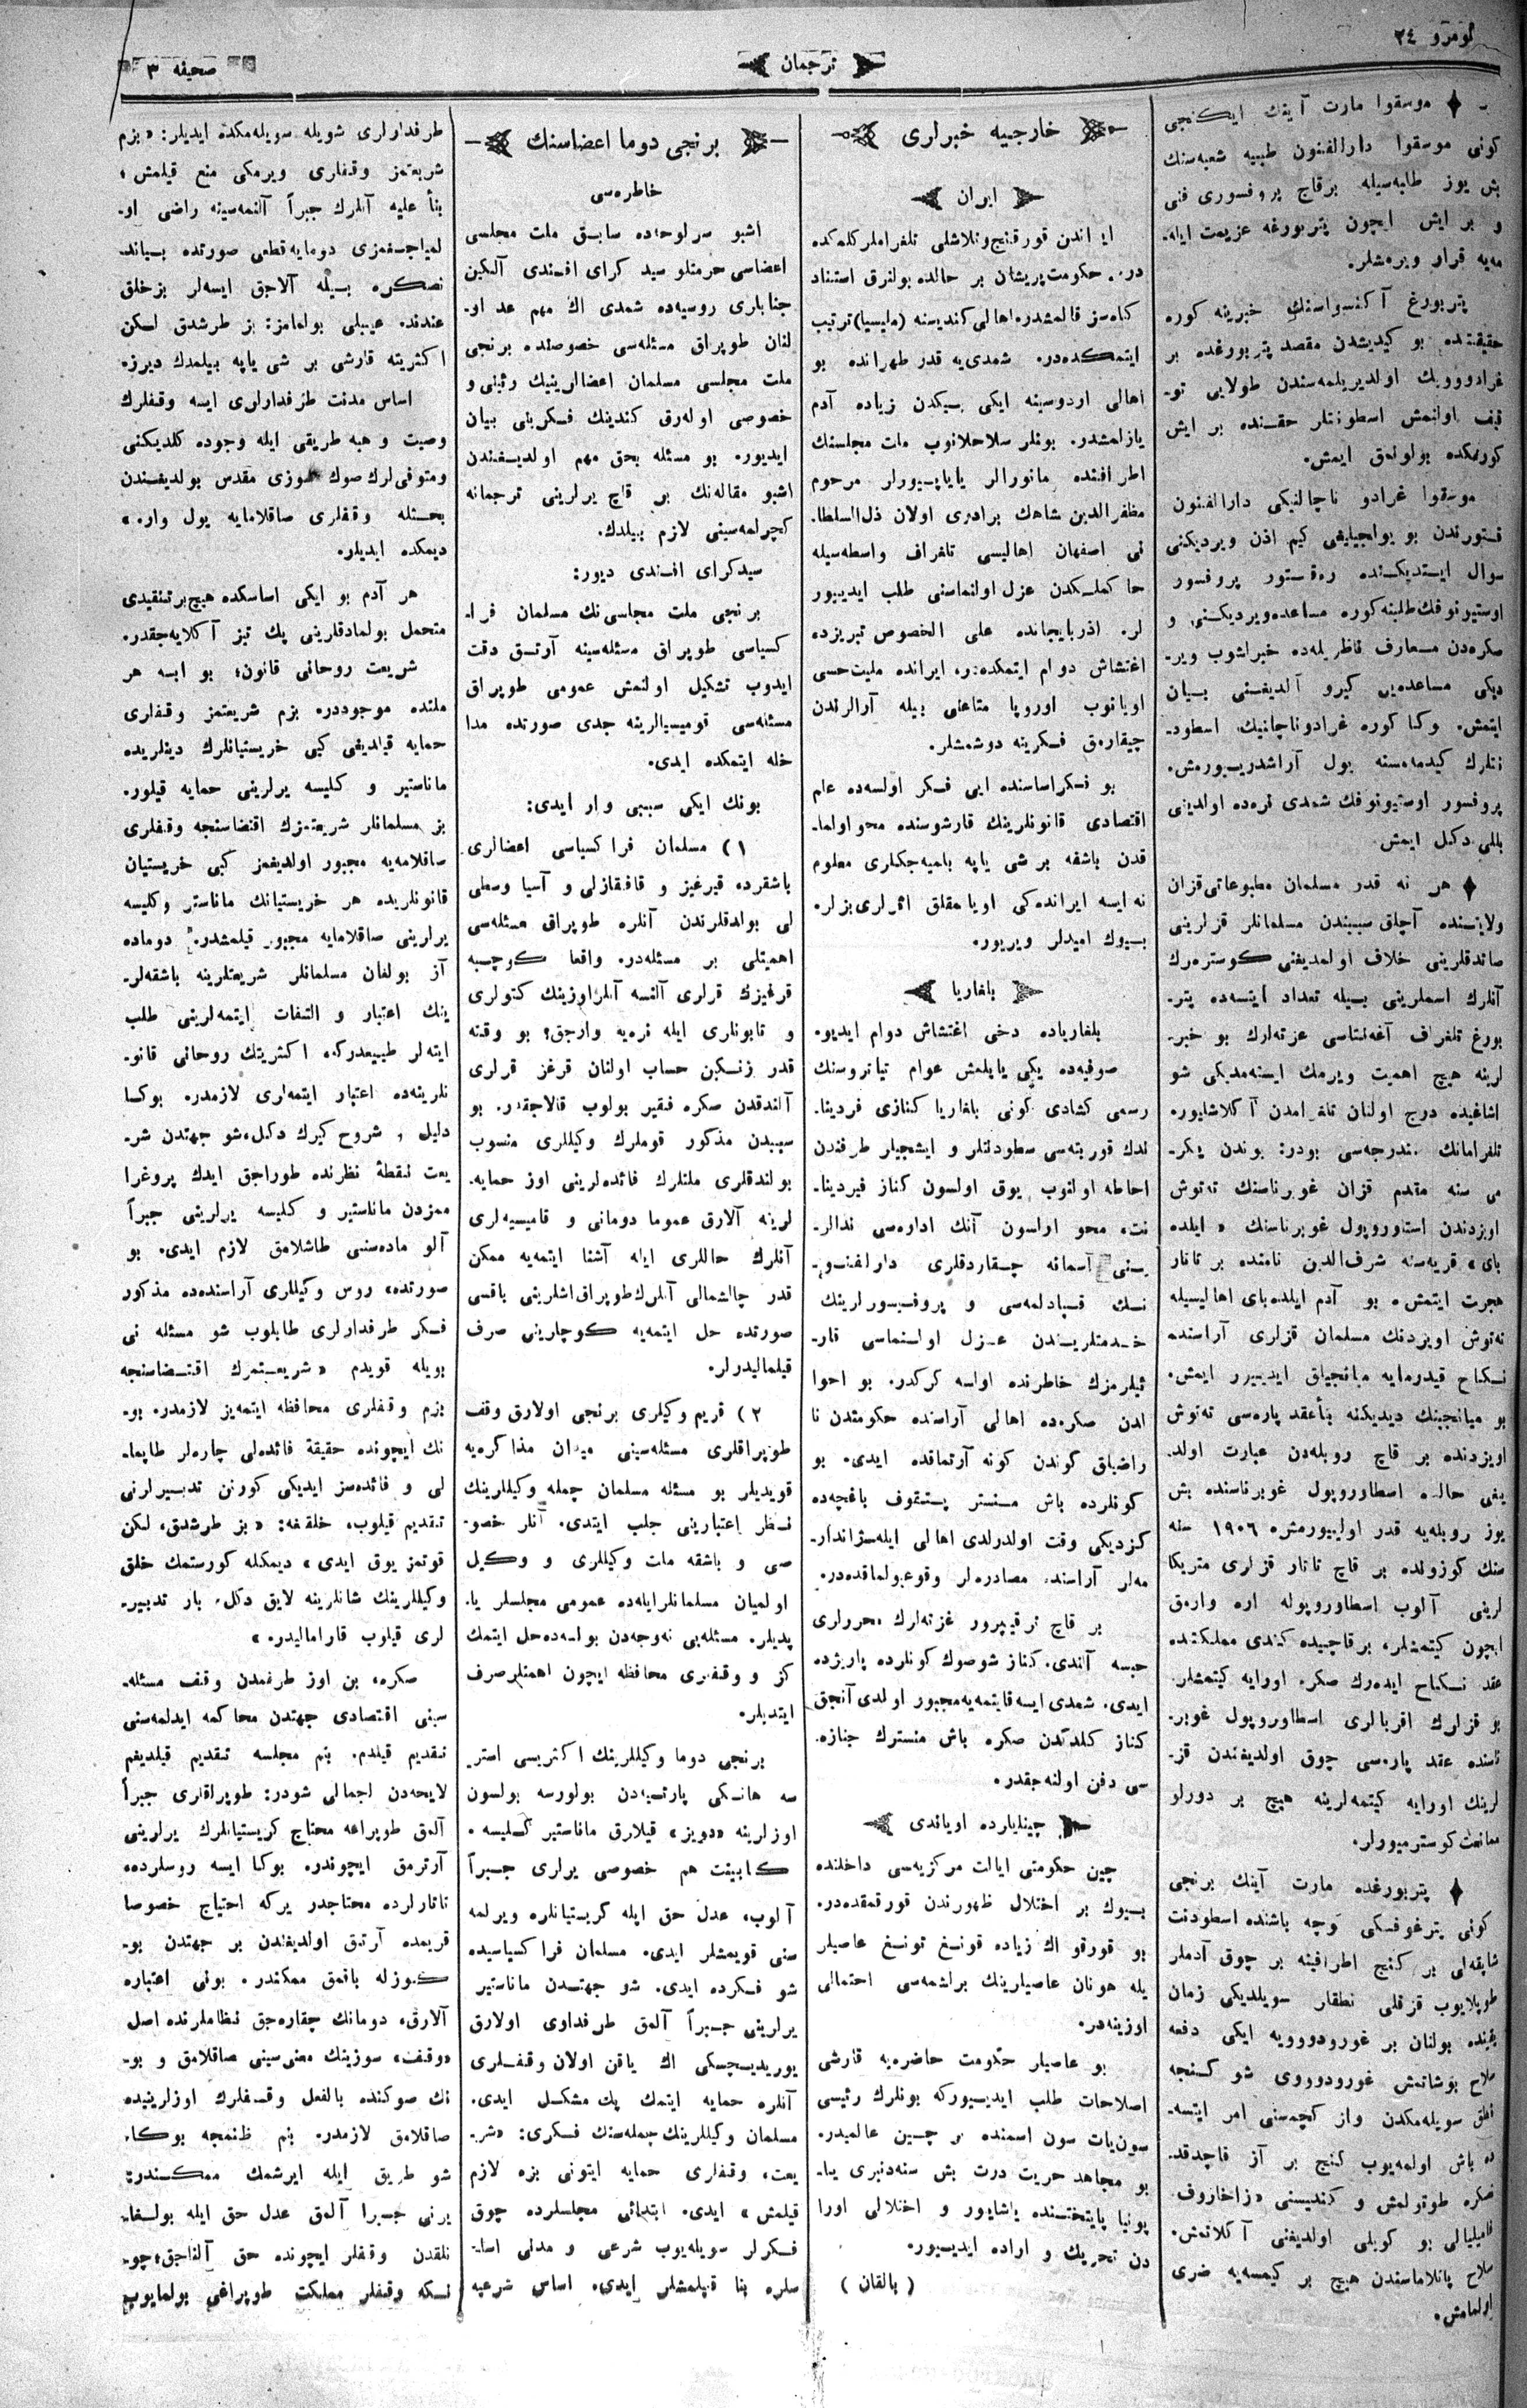 نومرو ٢٤
ترجمان
صحيفه ٣
موسقوا مارت آينك ايكنجى
كونى موسقوا دارالفنون طبيه شعبه‌سنك
بش يوز طلبه‌سيله برقاچ پروفسورى فنى
و بر ايش ايچون پتربورغه عزيمت ايله-
مه‌يه قرار ويرمشلر.
پتربورغ آگنسواسنك خبرينه كوره
حقيقتده بو كيديشدن مقصد پتربورغده بر
غرادوويك اولديريلمه‌سندن طولايى تو-
قيف اولنمش اسطودنتلر حقنده بر ايش
كورمكده بولونمق ايمش.
موسقوا غرادو ناچالنيكى دارالفنون
سوال ايستديكنده ره‌قستور پروفسور
صكره‌دن معارف ناظريله‌ده خبرلشوب وير-
ديكى مساعده‌يى كيرو آلديغنى بيان
ايتمش. وكا كوره غرادوناچالنيك اسطود-
نتلرك كيدمه‌سنه يول آراشدريبورمش.
پروفسور اوستيونوفك شمدى نره‌ده اولدينى
بللى دكل ايمش.
هر نه قدر مسلمان مطبوعاتى قزان
ولايتنده آچلق سببندن مسلمانلر قزلرينى
صاتدقلرينى خلاف اولمديغنى كوستره‌رك
آنلرك اسملرينى بيله تعداد ايتسه‌ده پتر-
بورغ تلغراف آغه‌نتاسى غزته‌لرك بو خبر-
لرينه هيچ اهميت ويرمك ايسته‌مديكى شو
اشاغيده درج اولنان تلغرامدن آكلاشلیور.
تلغرامانك مندرجه‌سى بودر: بوندن يكر-
مى سنه مقدم قزان غوبرناسنك ته‌توش
اويزدندن استاوروپول غوبرناسنك « ايلده
باى» قريه‌سنه شرف‌الدين نامنده بر تاتار
هجرت ايتمش. بو آدم ايلده‌باى اهاليسيله
ته‌توش اويزدنك مسلمان قزلرى آراسنده
نكاح قيدرمايه ميانجيلق ايديبور ايمش.
بو ميانجينك ديديكنه بنأ عقد پاره‌سى ته‌توش
اويزدنده بر قاچ روبله‌دن عبارت اولد-
يغى حالده اسطاوروپول غوبرناسنده بش
يوز روبله‌يه قدر اولييورمش. ١٩٠٦ سنه
سنك كوزولده بر قاچ تاتار قزلرى متريكا
لرينى آلوب اسطاوروپوله اره وارمق
ايچون كيتمشلر، برقاچيده كندى مملكتنده
عقد نكاح ايده‌رك صكره اورايه كيتمشلر.
بو قزلرك اقربالرى اسطاوروپول غوبر-
ناسنده عقد پاره‌سى چوق اولديغندن قز-
لرينك اورايه كيتمه‌لرينه هيچ بر دورلو
ممانعت كوسترميورلر.
پتربورغده مارت آينك برنجى
شاپقه‌لى بر كنج اطرافينه بر چوق آدملر
طوپلايوب قزقلى نطقلر سويلديكى زمان
يقينده بولنان بر غورودووويه ايكى دفعه
سلاح بوشاتمش غورودوووى شو كنجه
نطق سويله‌مكدن واز كچمه‌سنى امر ايتسه-
ده باش اولمه‌يوب كنج بر آز قاچدقد-
صكره طوتولمش و كنديسنى «زاخاروف
فاميليالى بو كويلى اولديغنى آكلاتمش.
سلاح پاتلاماسندن هيچ بر كيمسه‌يه ضرى
اولمامش.
خارجيه خبرلرى
ايران
ايراندن قورقنج و تلاشلى تلغراملر كلمكده
در. حكومت پريشان بر حالده بولنرق استناد
كاه‌سز قالمشدر. اهالى كنديسنه (مليسيا) ترتيب
ايتمكده‌در. شمدى‌يه قدر طهرانده بو
اهالى اردوسينه ايكى بيكدن زياده آدم
يازلمشدر. بونلر سلاحلانوب ملت مجلسنك
اطرافنده مانورالر ياپايورلر مرحوم
مظفرالدين شاهك برادرى اولان ذل‌السلطا-
نى اصفهان اهاليسى تلغراف واسطه‌سيله
حاكملكدن عزل اولنماسنى طلب ايديبور
لر. اذربايجانده على الخصوص تبريزده
اغتشاش دوام ايتمكده‌در. ايرانده مليت حسى
اويانوب اوروپا متاعنى بيله آرالرندن
چيقارمق فكرينه دوشمشلر.
بو فكر اساسنده ايى فكر اولسه‌ده علم
اقتصادى قانونلرينك قارشوسنده محو اولما-
قدن باشقه بر شى ياپه بلميه‌جكلرى معلوم
نه ايسه ايرانده‌كى اويانقلق اثرلرى بزلره
بيوك اميدلر ويريور.
بلغاريا
بلغارياده دخى اغتشاش دوام ايديور.
صوفيه‌ده يكى ياپلمش عوام تياتروسنك
رسمى كشادى كونى بلغاريا كنازى فردينا-
ندك قوريته‌سى سطودنتلر و ايشجيلر طرفندن
احاطه اولنوب يوق اولسون كناز فيردينا-
ند، محو اولسون آنك اداره‌سى ندالر-
ينى آسمانه چقاردقلرى دارالفنو-
نك قپادلمه‌سى و پروفيسورلرينك
خدمتلريندن عزل اولنماسى قار-
ئيلرمزك خاطرنده اولسه كركدر. بو احوا
لدن صكره‌ده اهالى آراسنده حكومتدن نا
راضيلق كوندن كونه آرتماقده ايدى. بو
كونلرده باش منستر پتقوف باغچه‌ده
كزديكى وقت اولدرلدى اهالى ايله ژاندار-
مه‌لر آراسنده مصادره‌لر وقوعبولماقده‌در.
بر قاچ ترقيپرور غزته‌لرك محررلرى
حبسه آلندى. كناز شو صوك كونلرده پاريژده
ايدى. شمدى ايسه قايتمه‌يه مجبور اولدى آنجق
كناز كلدكدن صكره باش منسترك جنازه-
سى دفن اولنه‌جقدر.
چينليلرده اوياندى
چين حكومتى ايالت مركزيه‌سى داخلنده
بيوك بر اختلال ظهورندن قورقمقده‌در.
بو قورقو اك زياده قونسغ تونسغ عاصيلر
يله هونان عاصيلرينك برلشمه‌سى احتمالى
اوزينه‌در.
بو عاصيلر حكومت حاضره‌يه قارشى
اصلاحات طلب ايديبوركه بونلرك رئيسى
سون‌يات سون اسمنده بر چين عالميدر.
بو مجاهد حريت درت بش سنه‌دنبرى يا-
پونيا پايتختنده ياشايور و اختلالى اورا
دن تحريك و اراده ايديبور.
( بالقان )
برنجى دوما اعضاسنك
خاطره‌سى
اشبو سرلوحه‌ده سابق ملت مجلسى
اعضاسى حرمتلو سيد كراى افندى آلكين
جنابلرى روسيه‌ده شمدى اك مهم عد او-
لنان طوپراق مسئله‌سى خصوصنده برنجى
ملت مجلسى مسلمان اعضالرينك رئيلى و
خصوصى اوله‌رق كندينك فكرينى بيان
ايديور. بو مسئله بحق مهم اولديغندن
اشبو مقاله‌نك بر قاچ يرلرينى ترجمانه
كچرلمه‌سينى لازم بيلدك.
سيدكراى افندى ديور:
برنجى ملت مجلسى‌نك مسلمان فرا-
كسياسى طوپراق مسئله‌سينه آرتق دقت
ايدوب تشكيل اولنمش عمومى طوپراق
مسئله‌سى قوميسيالرينه جدى صورتده مدا
خله ايتمكده ايدى.
بونك ايكى سببى وار ايدى:
١) مسلمان فراكسياسى اعضالرى
باشقرد، قيرغيز و قافقازلى و آسيا وسطى
لى بولدقلرندن آنلره طوپراق مسئله‌سى
اهميتلى بر مسئله‌در. واقعا كوچبه
قرغيزك قرلرى آلنسه آنلر اوزينك كتولرى
و تابونلرى ايله نره‌يه وارجق؟ بو وقته
قدر زنكين حساب اولنان قرغز قرلرى
آلندقدن صكره فقير بولوب قالاجقدر. بو
سببدن مذكور قوملرك وكيللرى منسوب
بولندقلرى ملتلرك فائده‌لرينى اوز حمايه-
لرينه آلارق عموما دومانى و قاميسيه‌لرى
آنلرك حاللرى ايله آشنا ايتمه‌يه ممكن
قدر چالشمالى آنلرك طوپراق اشلرينى ياقسى
صورتده حل ايتمه‌يه كوچلرينى صرف
قيلماليدرلر.
٢) قريم وكيلرى برنجى اولارق وقف
طوپراقلرى مسئله‌سينى ميدان مذاكره‌يه
قويديلر بو مسئله مسلمان جمله وكيللرينك
نظر اعتبارينى جلب ايتدى. آنلر خصو-
صى و باشقه ملت وكيللرى و وكيل
اولميان مسلمانلرايله‌ده عمومى مجلسلر يا-
پديلر. مسئله‌يى نه‌وجه‌دن بولسه‌ده حل ايتمك
كز و وقفلرى محافظه ايچون اهمتلر صرف
ايتديلر.
برنجى دوما وكيللرينك اكثريسى استر
سه هانكى پارتيه‌دن بولورسه بولسون
اوزلرينه «دويز» قيلارق ماناستير كليسه،
كابينت هم خصوصى يرلرى جبراً
آلوب، عدل حق ايله كريستيانلره ويرلمه
سنى قويمشلر ايدى. مسلمان فراكسياسيده
شو فكرده ايدى. شو جهتدن ماناستير
يرلرينى جبراً آلمق طرفداوى اولارق
يوريديجكى اك ياقن اولان وقفلرى
آنلره حمايه ايتمك پك مشكل ايدى.
مسلمان وكيللرينك جمله‌سنك فكرى: «شر-
يعت، وقفلرى حمايه ايتونى بزه لازم
قيلمش» ايدى. ابتدائى مجلسلرده چوق
فكرلر سويله‌يوب شرعى و مدنى اسا-
سلره بنا قيلمشلر ايدى. اساس شرعيه
طرفدارلرى شويله سويله‌مكده ايديلر: «بزم
شريعتمز وقفلرى ويرمكى منع قيلمش؛
بنأ عليه آنلرك جبراً آلنمه‌سينه راضى او-
لمياجغمزى دومايه قطعى صورتده بياند-
نصكره بيله آلاجق ايسه‌لر بزخلق
عندنده عيبلى بولمامز: بز طرشدق لكن
اكثريته قارشى بر شى ياپه بيلمدك ديرز.
اساس مدنت طرفدارلرى ايسه وقفلرك
وصيت و هبه طريقى ايله وجوده كلديكنى
ومتوفى‌لرك صوك سوزى مقدس بولديغندن
بحثله وقفلرى صاقلامايه يول وار.»
ديمكده ايديلر.
هر آدم بو ايكى اساسكده هيچ بر تنقيدى
متحمل بولمادقلرينى پك تيز آكلايه‌جقدر.
شريعت روحانى قانون؛ بو ايسه هر
ملتده موجوددر. بزم شريعتمز وقفلرى
حمايه قيلديغى كبى خريستيانلرك دينلريده
ماناستير و كليسه يرلرينى حمايه قيلور.
بز مسلمانلر شريعتمزك اقتضاسنجه وقفلرى
ساقلامه‌يه مجبور اولديغمز كبى خريستيان
قانونلريده هر خريستيانك ماناستر وكليسه
يرلرينى صاقلامايه مجبور قيلمشدر. دوماده
آز بولغان مسلمانلر شريعتلرينه باشقه‌لر-
ينك اعتبار و التفات ايتمه‌لرينى طلب
ايته‌لر طبيعدركه، اكثريتك روحانى قانو-
نلرينه‌ده اعتبار ايتمه‌لرى لازمدر. بوكا
دليل و شروح كيرك دكل، شو جهتدن شر-
يعت نقطهٔ نظرنده طوراجق ايدك پروغرا
ممزدن ماناستير و كليسه يرلرينى جبراً
آلو ماده‌سنى طاشلامق لازم ايدى. بو
صورتده، روس وكيللرى آراسنده‌ده مذكور
فكر طرفدارلرى طابلوب شو مسئله نى
بويله قويدم «شريعتمزك اقتضاسنجه
بزم وقفلرى محافظه ايتمه‌يز لازمدر. بو-
نك ايچونده حقيقة فائده‌لى چاره‌لر طاپما-
لى و فائده‌سز ايديكى كورنن تدبيرلرنى
تقديم قيلوب، خلقغه: «بز طرشدق، لكن
قوتمز يوق ايدى» ديمكله كورستمك خلق
وكيللرينك شانلرينه لايق دكل، بار تدبير-
لرى قيلوب قارامالیدر.»
صكره، بن اوز طرفمدن وقف مسئله-
سينى اقتصادى جهتدن محاكمه ايدلمه‌سنى
تقديم قيلدم. بنم مجلسه تقديم قيلديغم
لايحه‌دن اجمالى شودر: طوپراقلرى جبراً
آلمق طوپراغه محتاج كريستيانلرك يرلرينى
آرترمق ايچوندر. بوكا ايسه روسلرده،
تاتارلرده محتاجدر يركه احتياج خصوصا
قريمده آرتق اولديغندن بر جهتدن بو-
كوزله باقمق ممكندر. بونى اعتباره
آلارق، دومانك چقاره‌جق نظاملرنده اصل
«وقف» سوزينك معنى‌سينى صاقلامق و بو-
نك صوكنده بالفعل وقفلرك اوزلرينيده
صاقلامق لازمدر. بنم ظنمجه بوكا،
شو طريق ايله ايرشمك ممكندر:
يرنى جبرا آلمق عدل حق ايله بولغا-
نلقدن وقفلر ايچونده حق آلناجق؛ چو-
نكه وقفلر مملكت طوپراغى بولمايوب